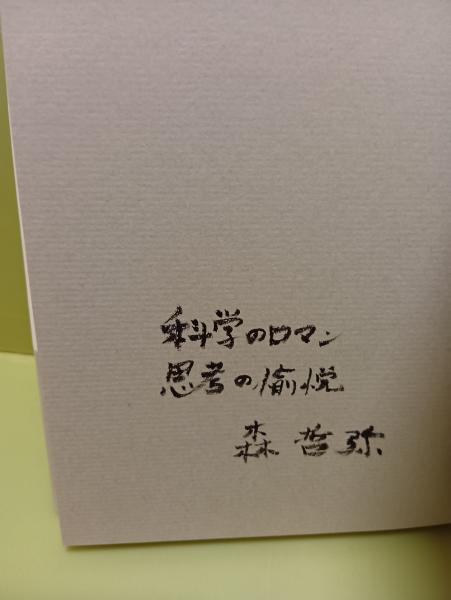 科学のロマン
思考の愉悦
森哲弥